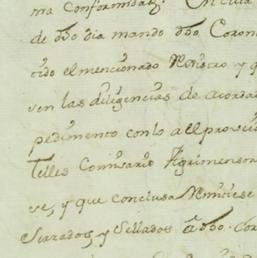 ma conformidad. En cuia
de dho dia mando dho Coron
tido el mencionado Ministro y q
ven las diligencias de acordar
pedimento con lo a el proveid
Telles Comisario Agrimensor
se, y que conclusa Remitiese
Serrados y Sellados a dho. Cor